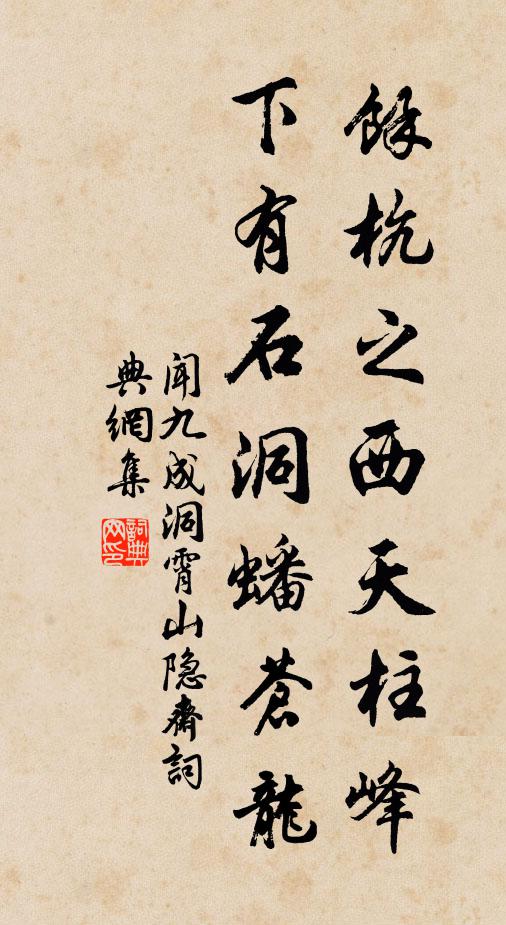 餘杭之西天柱峰
下有石洞蟠蒼龍
聞九成洞霄山隐齋詞
典網集
詞典網印